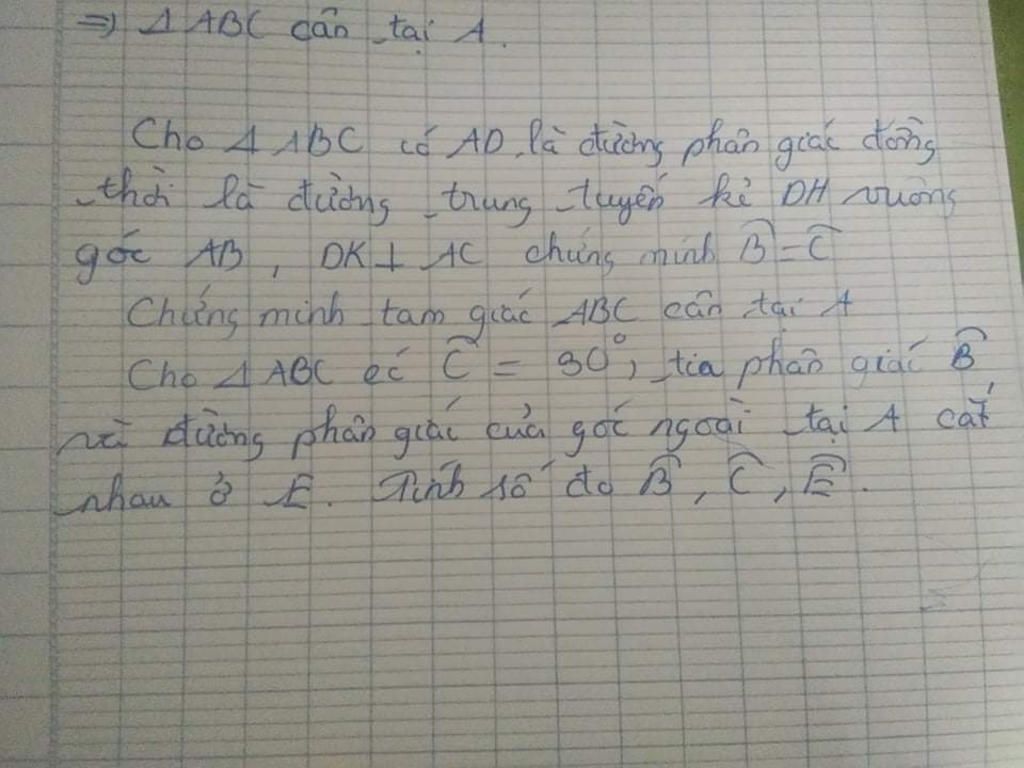 ⇒ Δ ABC cân tại A.
Cho Δ ABC có AD là đường phân giác đồng
thời là đường trung tuyến kẻ DH vuông
góc AB, DK ⊥ AC chứng minh B̂ = Ĉ
Chứng minh tam giác ABC cân tại A
Cho Δ ABC có Ĉ = 30°, tia phân giác B̂
và đường phân giác của góc ngoài tại A cắt
nhau ở E. Tính số đo B̂, Ĉ, Ê.